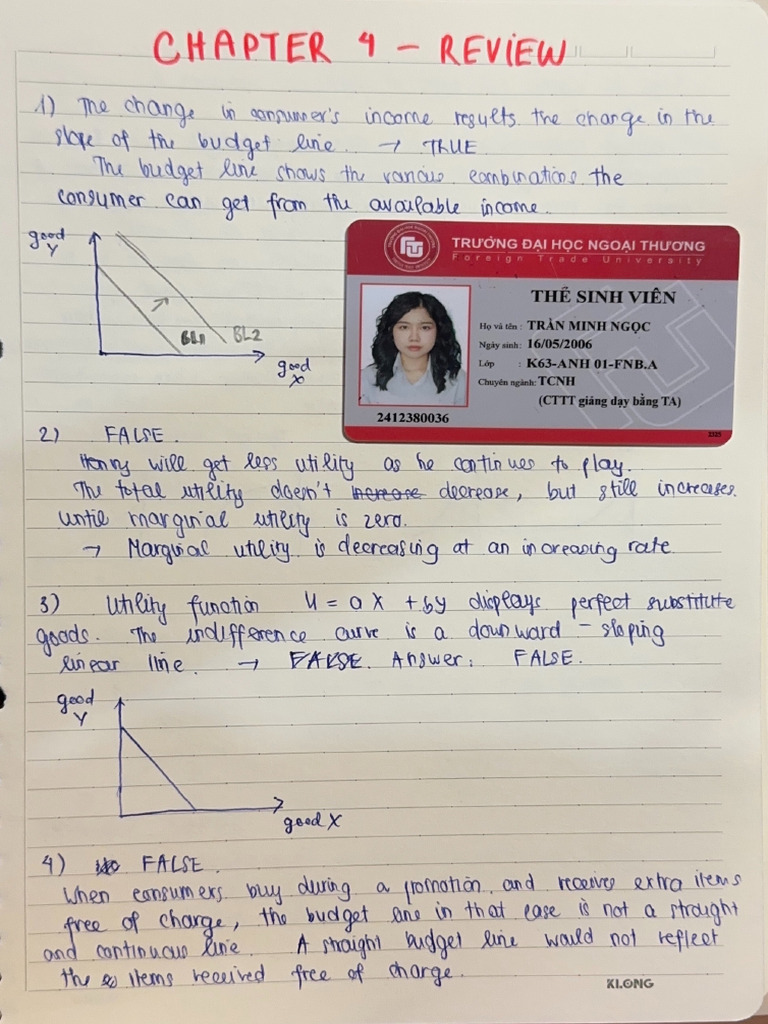 CHAPTER 4 - REVIEW
1) The change in consumer's income results the change in the
slope of the budget line. → TRUE
The budget line shows the various combinations the
consumer can get from the available income.
good
Y
BL1
BL2
good
X
TRƯỜNG ĐẠI HỌC NGOẠI THƯƠNG
Foreign Trade University
THẺ SINH VIÊN
Họ và tên : TRẦN MINH NGỌC
Ngày sinh: 16/05/2006
Lớp : K63-ANH 01-FNB.A
Chuyên ngành: TCNH
(CTTT giảng dạy bằng TA)
2412380036
2) FALSE.
Henry will get less utility as he continues to play.
The total utility doesn't increase decrease, but still increases
until marginal utility is zero.
→ Marginal utility is decreasing at an increasing rate
3) Utility function U = aX + bY displays perfect substitute
goods. The indifference curve is a downward - sloping
linear line. → FALSE. Answer: FALSE.
good
Y
good X
4) FALSE.
When consumers buy during a promotion and receives extra items
free of charge, the budget line in that case is not a straight
and continuous line. A straight budget line would not reflect
the items received free of charge.
KLONG